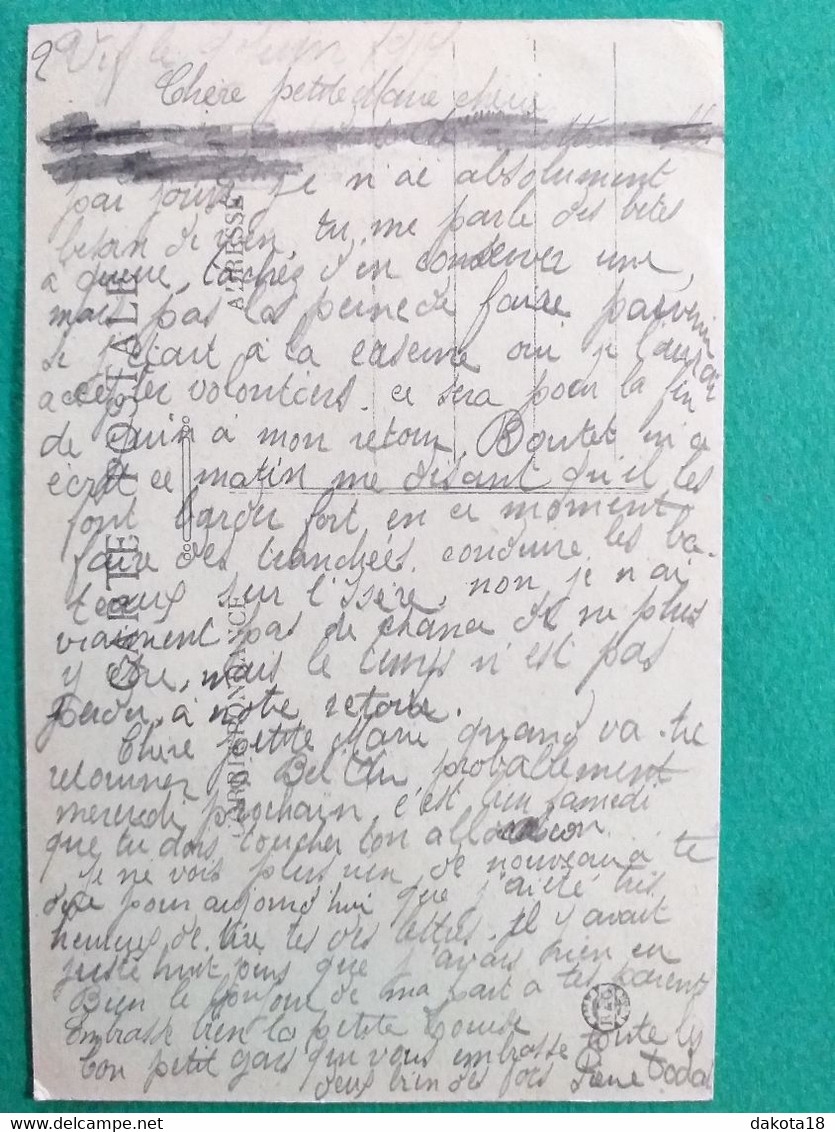 2
Vif le Juin
Chère petite Marie chérie
par jours, je n'ai absolument
besoin de rien, tu me parle des betes
a queue, tachez d'en conserver une,
mais pas la peine de faire parvenir
si j'etait à la caserne oui je l'aurai
accepter volontiers. ce sera pour la fin
de juin a mon retour, Boutet m'a
écrit ce matin me disant qu'il les
font barder fort en ce moment
faire des tranchées. conduire les ba-
teaux sur l'Isère, non je n'ai
vraiment pas de chance de ne plus
y être, mais le temps n'est pas
perdu, à notre retour.
Chère petite Marie quand va-tu
retourner Bel Air probablement
mercredi prochain, c'est bien samedi
que tu dois toucher ton allocation.
Je ne vois plus rien de nouveau a te
dire pour aujourd'hui que j'ai été tres
heureux de lire tes des lettres. Il y avait
juste huit jours que j'avais rien eu
Bien le bonjour de ma part a tes parents
Embrasse bien la petite Louise
Ton petit gars qui vous embrasse toute les
deux bien des fois
CARTE POSTALE
CORRESPONDANCE
ADRESSE
dakota18